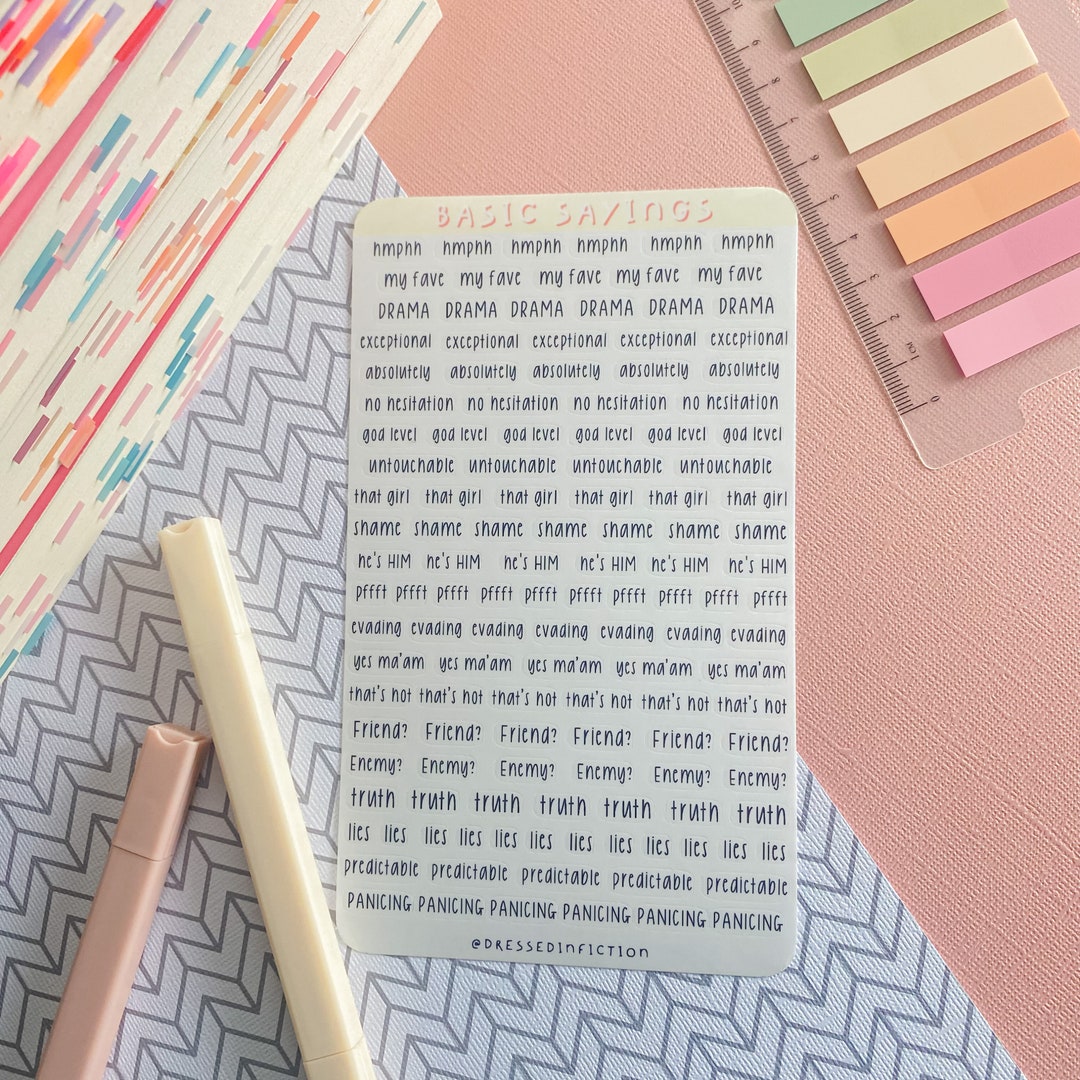 BASIC SAYINGS
hmphh hmphh hmphh hmphh hmphh hmphh
my fave my fave my fave my fave my fave
DRAMA DRAMA DRAMA DRAMA DRAMA DRAMA
exceptional exceptional exceptional exceptional exceptional
absolutely absolutely absolutely absolutely absolutely
no hesitation no hesitation no hesitation no hesitation
god level god level god level god level god level god level
untouchable untouchable untouchable untouchable
that girl that girl that girl that girl that girl that girl
shame shame shame shame shame shame shame
he's HIM he's HIM he's HIM he's HIM he's HIM he's HIM
pffft pffft pffft pffft pffft pffft pffft pffft pffft pffft
evading evading evading evading evading evading evading
yes ma'am yes ma'am yes ma'am yes ma'am yes ma'am
that's not that's not that's not that's not that's not that's not
Friend? Friend? Friend? Friend? Friend? Friend?
Enemy? Enemy? Enemy? Enemy? Enemy? Enemy?
truth truth truth truth truth truth truth
lies lies lies lies lies lies lies lies lies lies lies lies
predictable predictable predictable predictable predictable
PANICING PANICING PANICING PANICING PANICING PANICING
@DRESSEDINFICTION
10 9 8 7 6 5 4 3 2 1cm 0